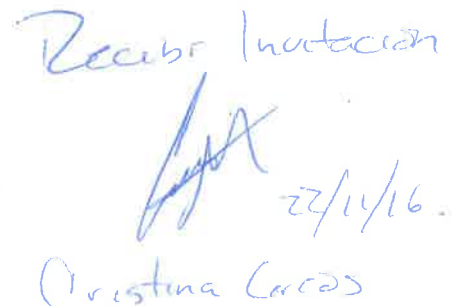 Recibi Invitación
22/11/16.
Cristina